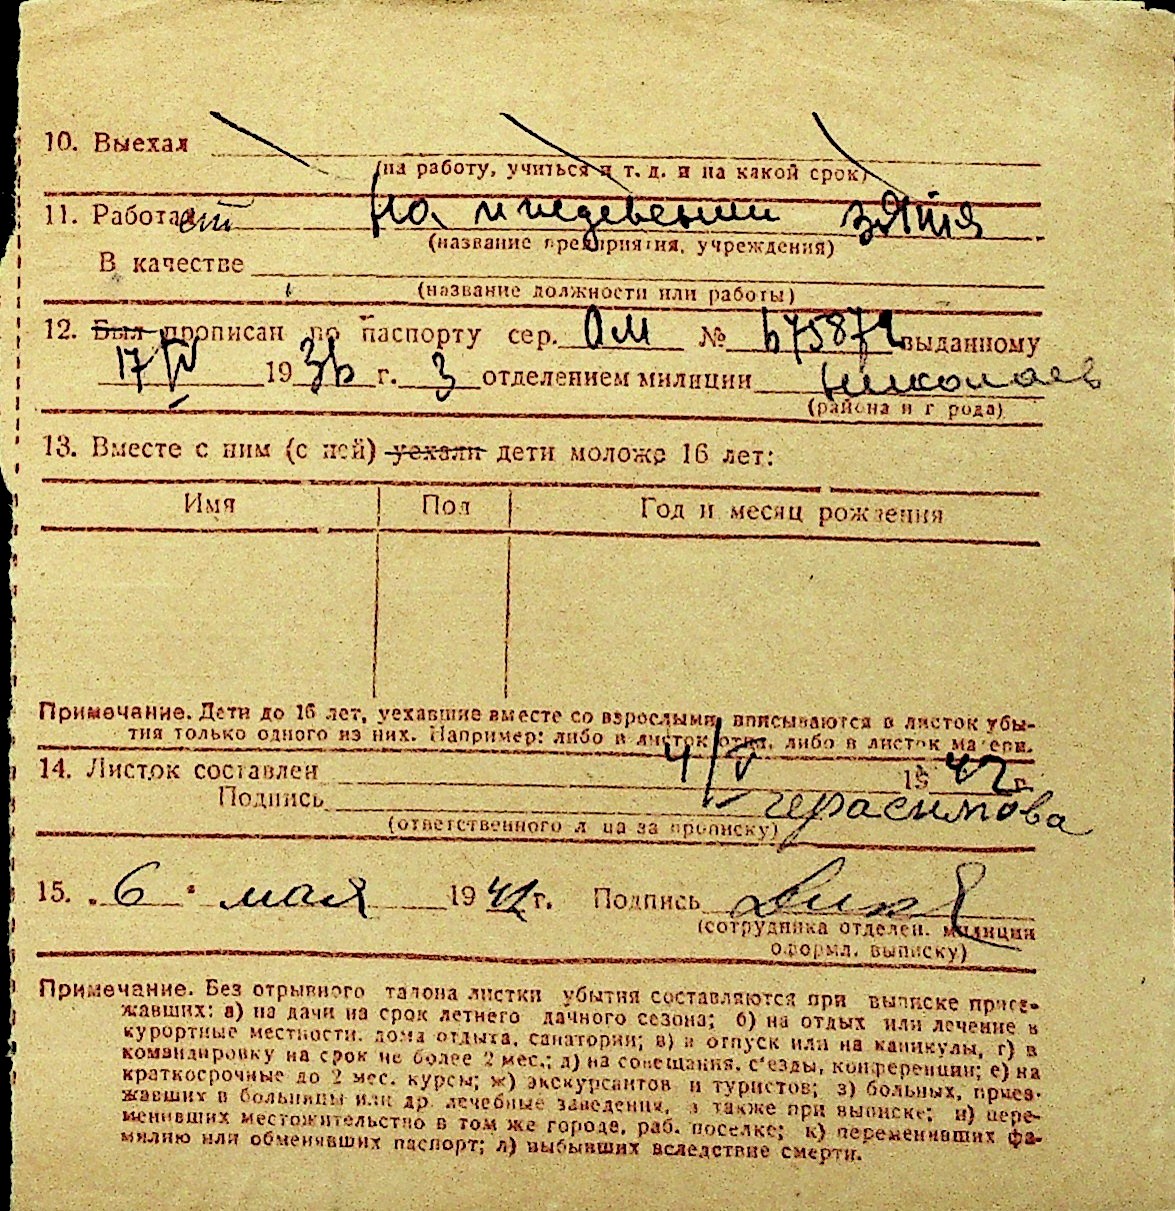 10. Выехал
(на работу, учиться и т. д. и на какой срок)
11. Работает на иждевении зятя
(название предприятия, учреждения)
В качестве
(название должности или работы)
12. Был прописан по паспорту сер. ОМ № 675872 выданному
17/IV 1936 г. 3 отделением милиции Николаев
(района и города)
13. Вместе с ним (с ней) уехали дети моложе 16 лет:
Имя Пол Год и месяц рождения
Примечание. Дети до 16 лет, уехавшие вместе со взрослыми, вписываются в листок убы-
тия только одного из них. Например: либо в листок отца, либо в листок матери.
14. Листок составлен 4/V 1942 г.
Подпись Герасимова
(ответственного лица за прописку)
15. „6" мая 1942 г. Подпись
(сотрудника отделен. милиции
оформл. выписку)
Примечание. Без отрывного талона листки убытия составляются при выписке приез-
жавших: а) на дачи на срок летнего дачного сезона; б) на отдых или лечение в
курортные местности, дома отдыха, санатории; в) в отпуск или на каникулы, г) в
командировку на срок не более 2 мес.; д) на совещания, с'езды, конференции; е) на
краткосрочные до 2 мес. курсы; ж) экскурсантов и туристов; з) больных, приез-
жавших в больницы или др. лечебные заведения, а также при выписке; и) пере-
менивших местожительство в том же городе, раб. поселке; к) переменивших фа-
милию или обменявших паспорт; л) выбывших вследствие смерти.